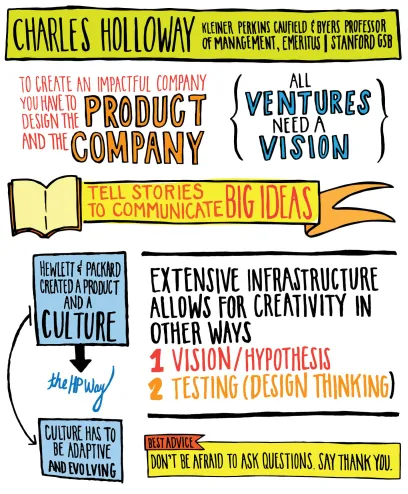 CHARLES HOLLOWAY
KLEINER PERKINS CAUFIELD & BYERS PROFESSOR
OF MANAGEMENT, EMERITUS | STANFORD GSB
TO CREATE AN IMPACTFUL COMPANY
YOU HAVE TO
DESIGN THE PRODUCT
AND THE COMPANY
ALL
VENTURES
NEED A
VISION
TELL STORIES
TO COMMUNICATE BIG IDEAS
HEWLETT & PACKARD
CREATED A PRODUCT
AND A
CULTURE
the HP Way
CULTURE HAS TO
BE ADAPTIVE
AND EVOLVING
EXTENSIVE INFRASTRUCTURE
ALLOWS FOR CREATIVITY IN
OTHER WAYS
1 VISION/HYPOTHESIS
2 TESTING (DESIGN THINKING)
BEST ADVICE
DON'T BE AFRAID TO ASK QUESTIONS. SAY THANK YOU.